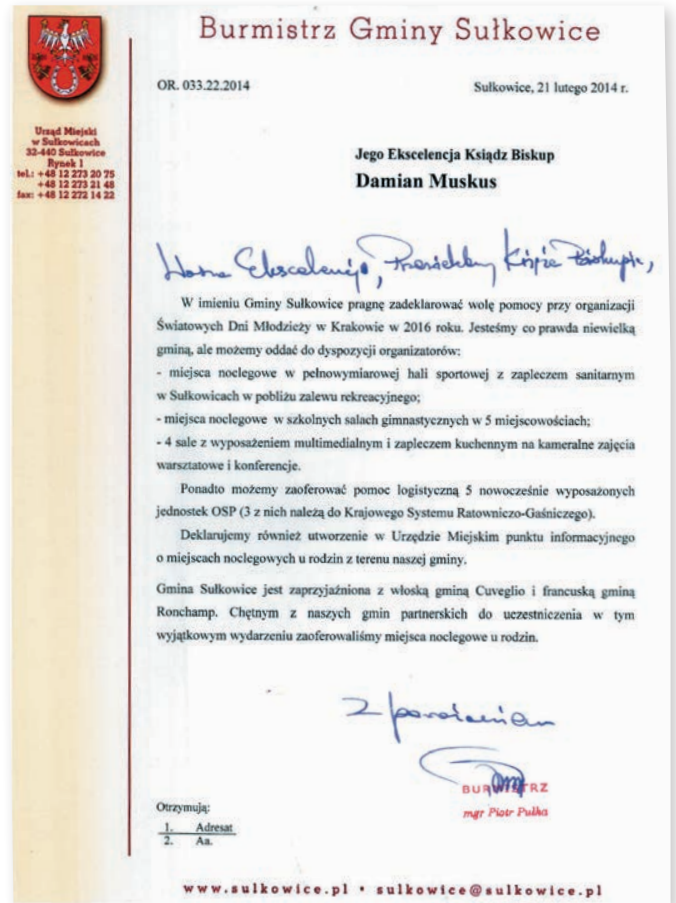 Burmistrz Gminy Sułkowice
Urząd Miejski
w Sułkowicach
32-440 Sułkowice
Rynek 1
tel.: +48 12 273 20 75
+48 12 273 21 48
fax: +48 12 272 14 22
OR. 033.22.2014
Sułkowice, 21 lutego 2014 r.
Jego Ekscelencja Ksiądz Biskup
Damian Muskus
Ekscelencjo, Księże Biskupie,
W imieniu Gminy Sułkowice pragnę zadeklarować wolę pomocy przy organizacji
Światowych Dni Młodzieży w Krakowie w 2016 roku. Jesteśmy co prawda niewielką
gminą, ale możemy oddać do dyspozycji organizatorów:
- miejsca noclegowe w pełnowymiarowej hali sportowej z zapleczem sanitarnym
w Sułkowicach w pobliżu zalewu rekreacyjnego;
- miejsca noclegowe w szkolnych salach gimnastycznych w 5 miejscowościach;
- 4 sale z wyposażeniem multimedialnym i zapleczem kuchennym na kameralne zajęcia
warsztatowe i konferencje.
Ponadto możemy zaoferować pomoc logistyczną 5 nowocześnie wyposażonych
jednostek OSP (3 z nich należą do Krajowego Systemu Ratowniczo-Gaśniczego).
Deklarujemy również utworzenie w Urzędzie Miejskim punktu informacyjnego
o miejscach noclegowych u rodzin z terenu naszej gminy.
Gmina Sułkowice jest zaprzyjaźniona z włoską gminą Cuveglio i francuską gminą
Ronchamp. Chętnym z naszych gmin partnerskich do uczestniczenia w tym
wyjątkowym wydarzeniu zaoferowaliśmy miejsca noclegowe u rodzin.
Z poważaniem
BURMISTRZ
mgr Piotr Pułka
Otrzymują:
1. Adresat
2. Aa.
www.sulkowice.pl • sulkowice@sulkowice.pl